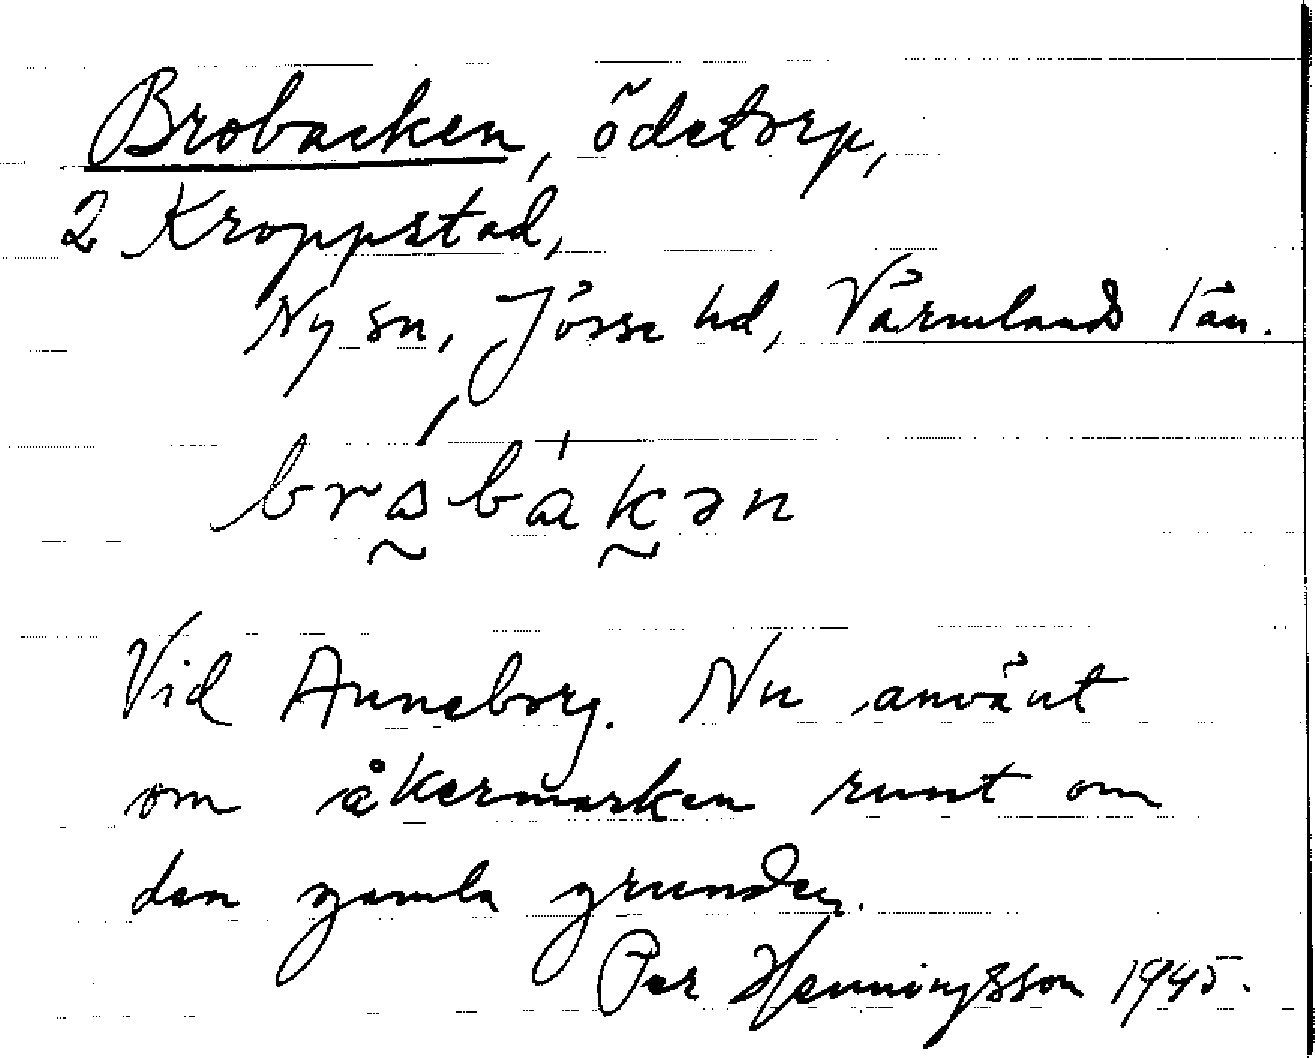 Brobacken, ödetorp,
2 Kroppstad,
Ny sn, Jösse hd, Värmlands län.
Vid Anneborg. Nu använt
om åkermarken runt om
den gamla grunden.
Per Henningsson 1945.